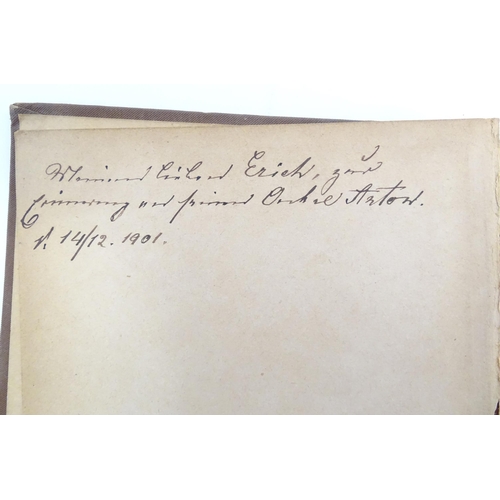 Meinem lieben Erich, zur
Erinnerung an seinen Onkel Axtow.
d. 14/12. 1901.